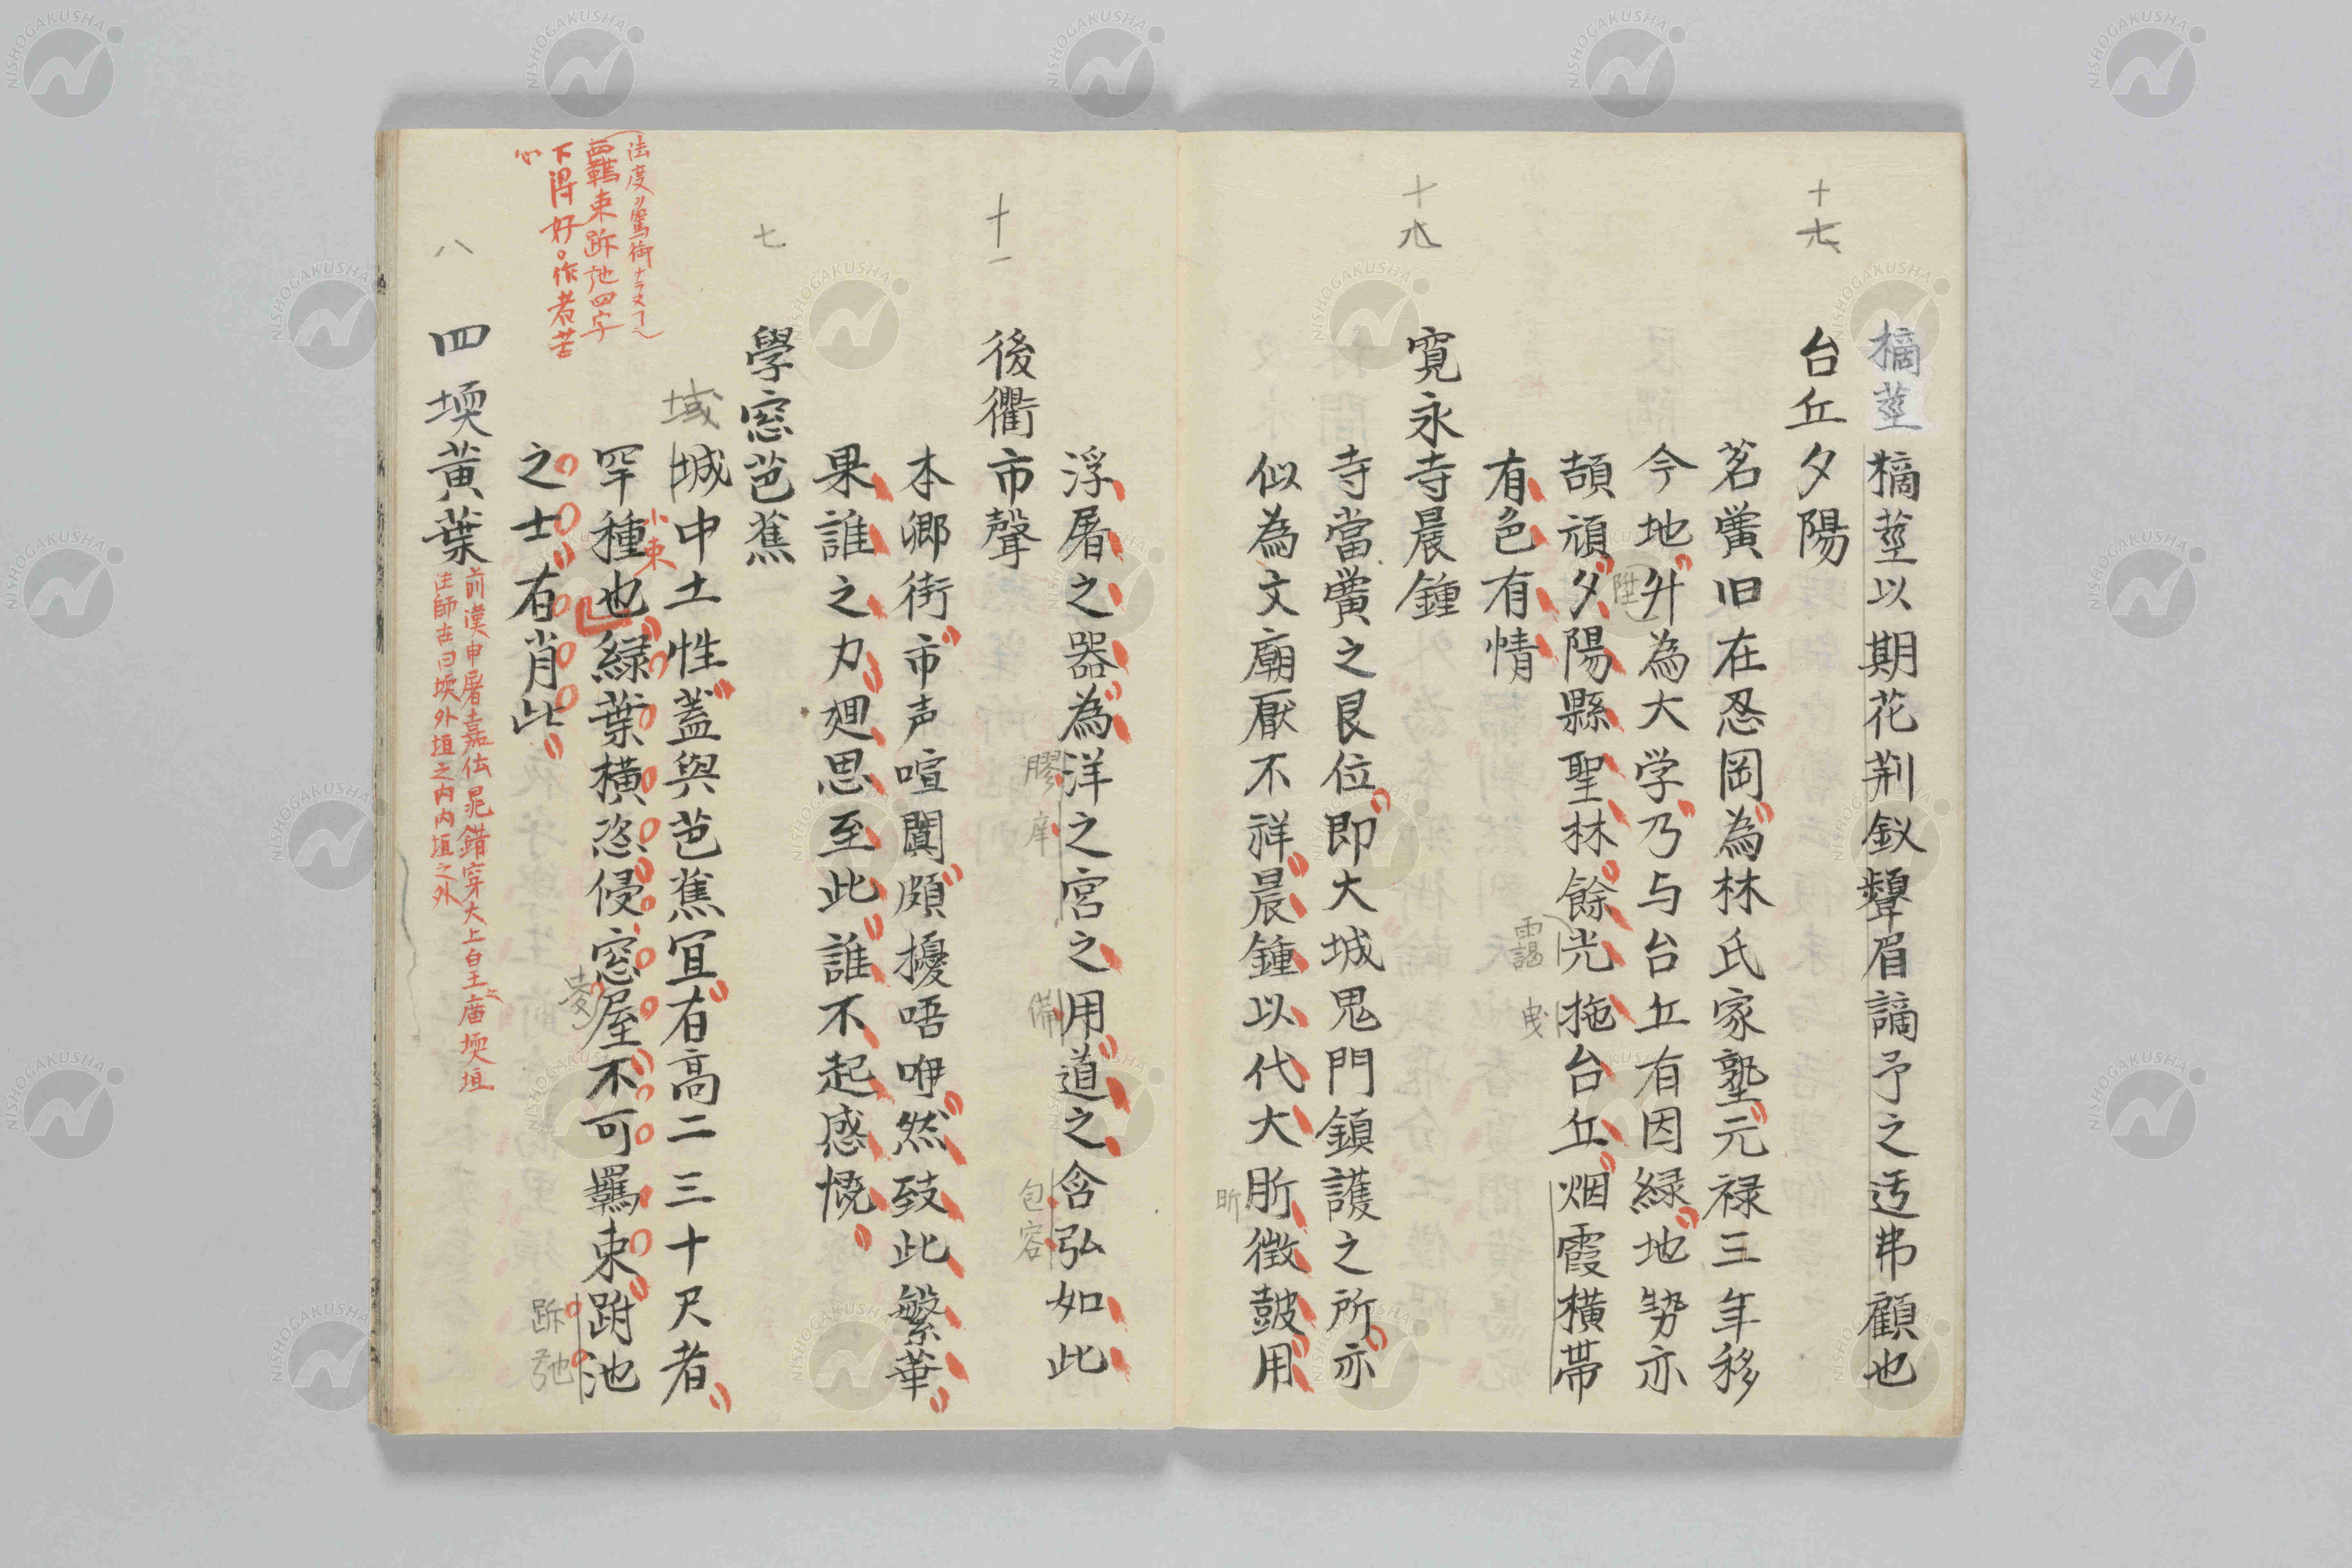 摛莖
摛莖以期花荆釵顰眉謫予之迂弗顧也
十七
台丘夕陽
茗黌旧在忍岡為林氏家塾元禄三年移
今地升為大学乃与台丘有因緑地势亦
陞
頡頏夕陽縣聖林餘光拖台丘烟霞横帯
靄
曳
有色有情
十八
寛永寺晨鐘
寺當黌之艮位即大城鬼門鎮護之所亦
似為文廟厭不祥晨鐘以代大昕徴鼓用
昕
浮屠之器為洋之宮之用道之含弘如此
膠庠
備
包容
十一
後衢市聲
本郷街市声喧闐頗擾唔咿然致此繁華
果誰之力廻思至此誰不起感慨
七
學窓芭蕉
域
城中土性蓋與芭蕉冝有高二三十尺者
罕種也緑葉横恣侵窓屋不可羈束跗池
小束
跅弛
之士有肖此
法度
羈束跅弛四字
下得好作者苦
心
八
四堧黄葉
前漢申屠嘉伝晁錯穿大上皇廟堧垣
注師古曰堧外垣之内内垣之外